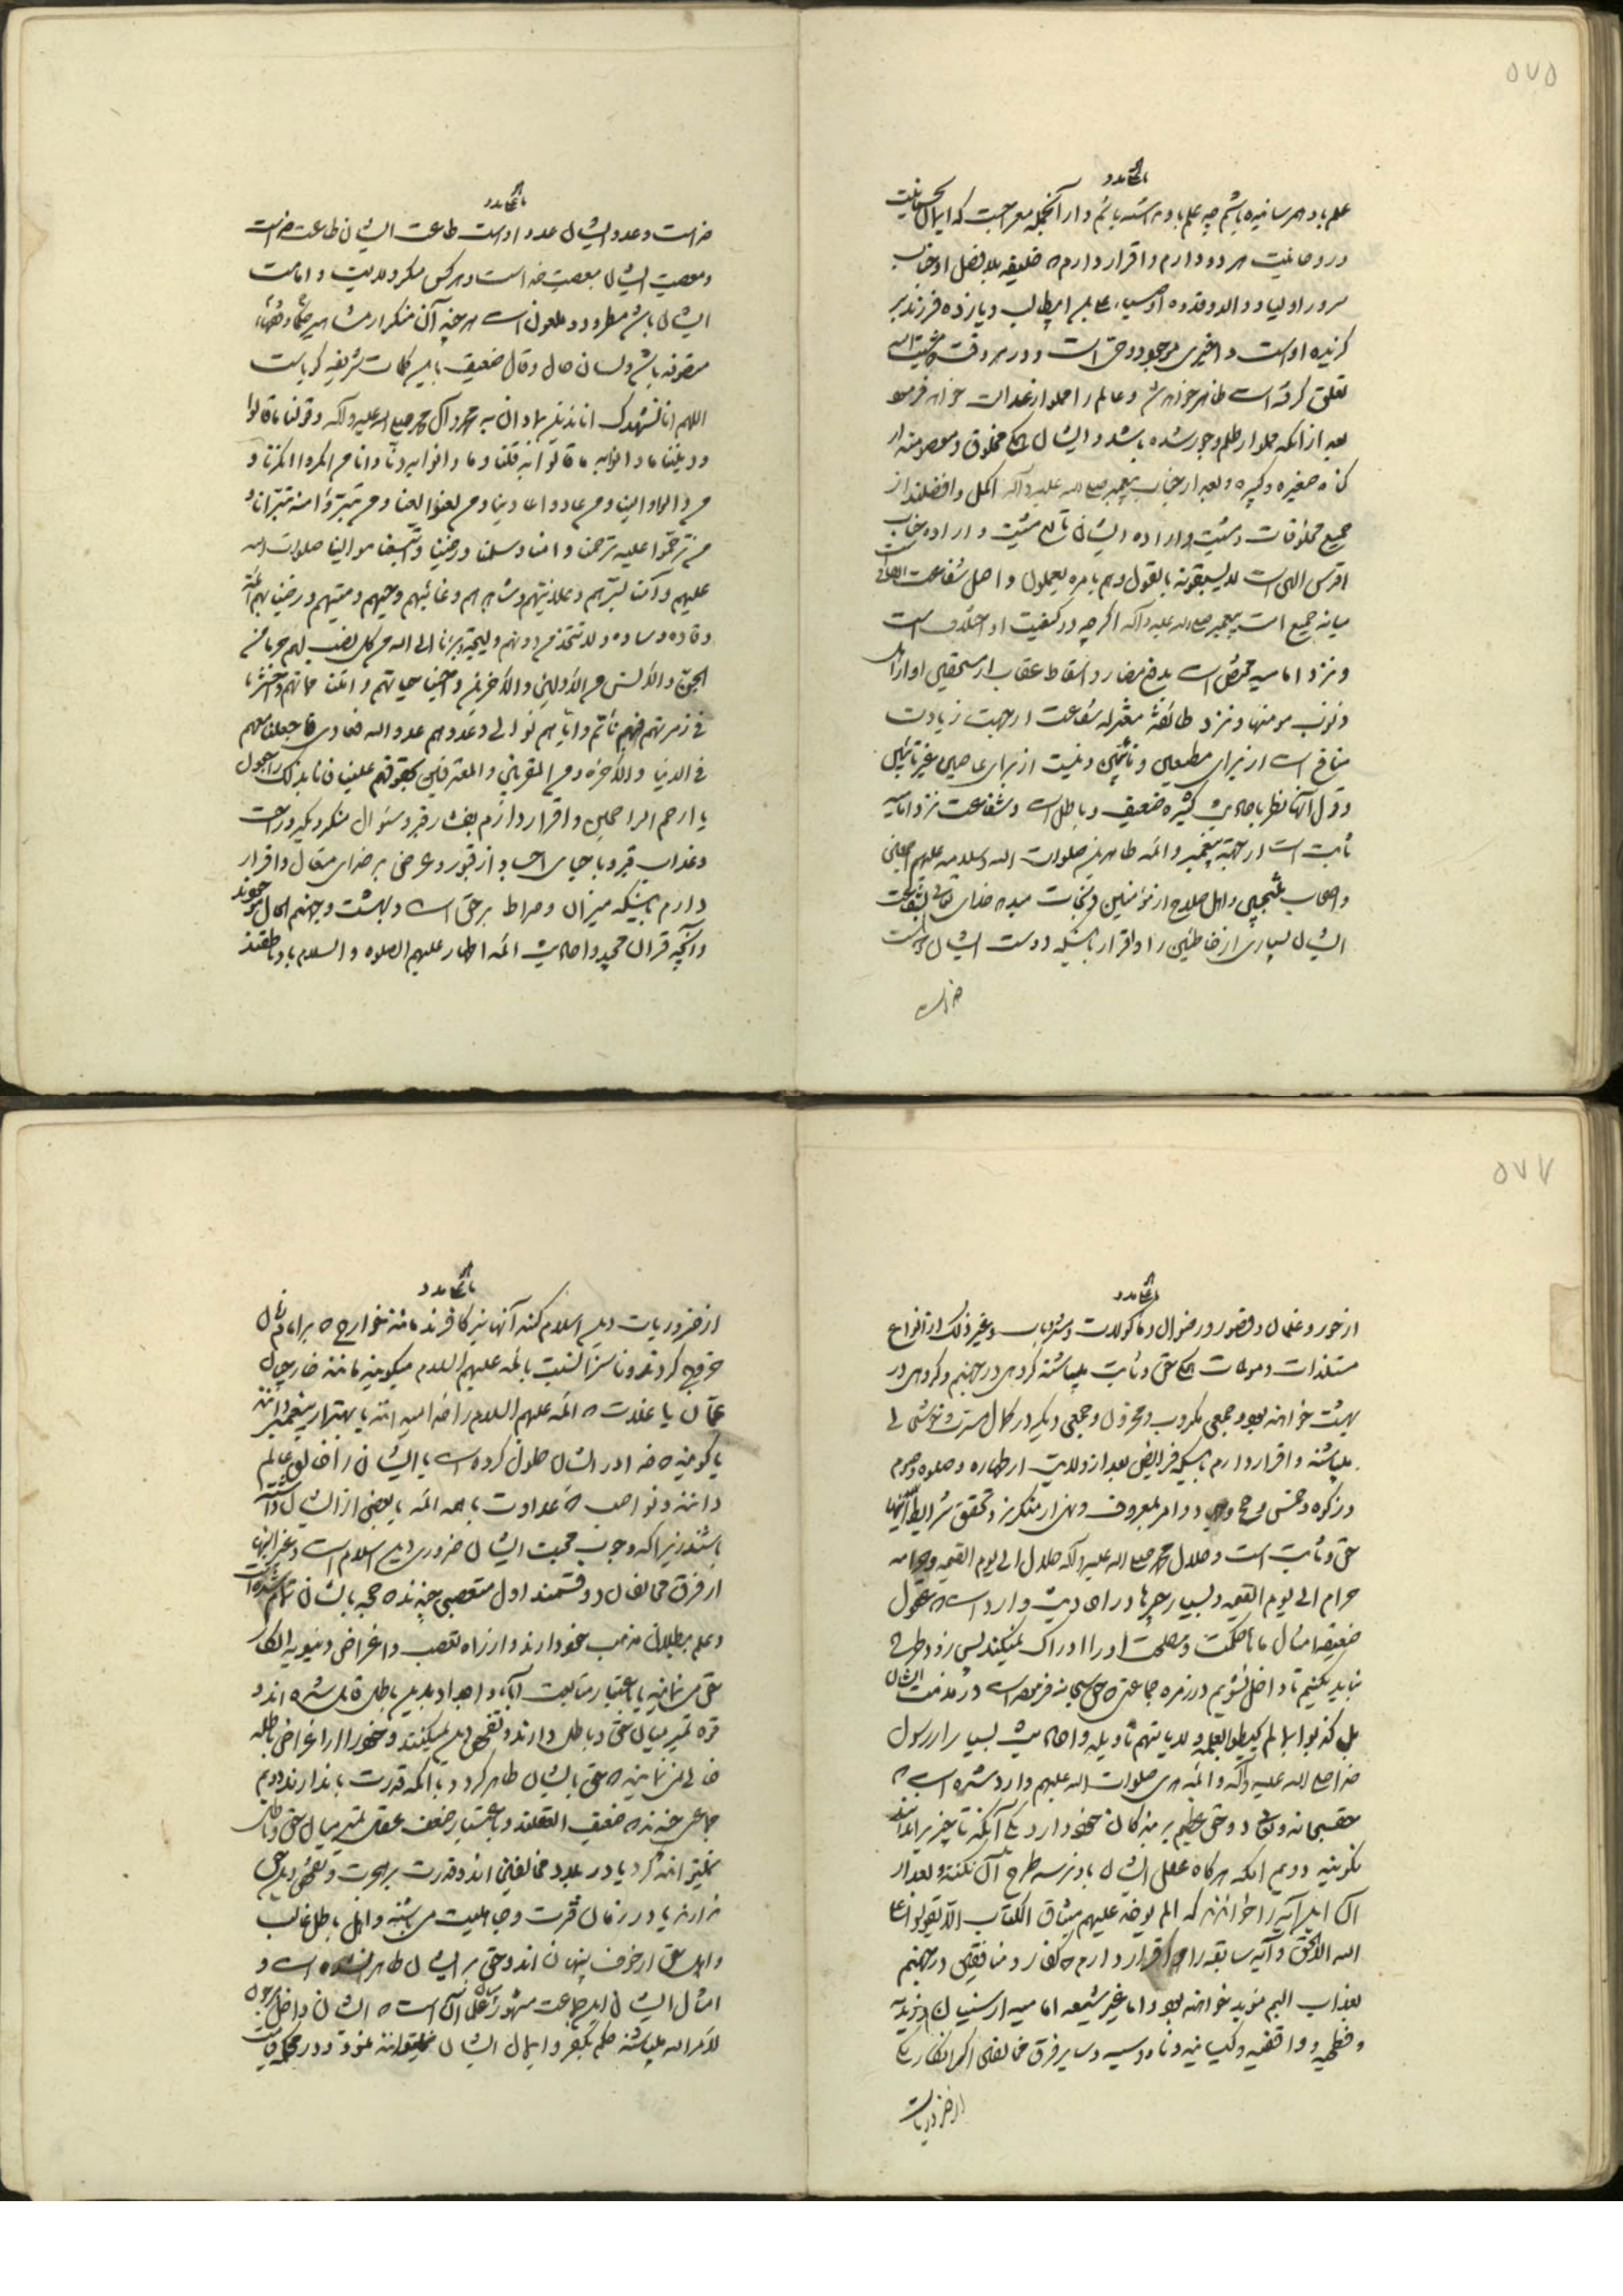 ۵۷۵
علم باو بهم رسانیده باشیم چه علم باو نداشته باشیم و از آنجمله معراجست که ایمان بجسمانیت
و روحانیت هر دو دارم و اقرار دارم که خلیفه بلا فصل او جناب
سرور اولیا و والد و قدوه اوصیاء علی بن ابیطالب و یازده فرزند بر
گزیده اوست و اخیری موجود و حی است و در هر وقت که مشیت الهی
تعلق گرفته است ظاهر خواهد شد و عالم را مملو از عدالت خواهد فرمود
بعد از آنکه مملو از ظلم و جور شده باشد و ایشان همگی مخلوق و معصومند از
گناه صغیره و کبیره و بعد از جناب پیغمبر صلی الله علیه و آله اکمل و افضلند از
جمیع مخلوقات و مشیت و اراده ایشان تابع مشیت و اراده جناب
اقدس الهی است لا یسبقونه بالقول و هم بامره یعملون و اصل شفاعت
میانه جمیع امت پیغمبر صلی الله علیه و آله اگر چه در کیفیت او اختلاف است
و نزد امامیه مختص است بدفع مضار و اسقاط عقاب از مستحقین او از اهل
ذنوب مومنها و نزد طائفه معتزله شفاعت از جهت زیادت
منافع است از برای مطیعین و تائبین و نیست از برای عاصین غیر تائبین
و قول آنها نظر باحادیث کثیره ضعیف و باطل است و شفاعت نزد امامیه
ثابت است از جهة پیغمبر و ائمه طاهرین صلوات الله و سلامه علیهم اجمعین
و اصحاب منتجبین و اهل صلاح از مؤمنین و نجات میدهد خدای تعالی بشفاعت
ایشان بسیاری از خاطئین را و اقرار باینکه دوست ایشان دوست
خداست
خداست و عدو ایشان عدو اوست طاعت ایشان طاعت خداست
و معصیت ایشان معصیت خداست و هر کس منکر ولایت و امامت
ایشان باشد مطرود و ملعون است هر چند آن منکر از مشاهیر علما و فقهاء
متصوفه باشد و لسان حال و قال ضعیف باین کلمات شریفه گویاست
اللهم انا نشهدک انا ندین بما دان به محمد و آل محمد صلی الله علیه و آله و قولنا ما قالوا
و دیننا ما دانوا به ما قالوا به قلنا و ما دانوا به دنا و ما انکروا انکرنا و
من والوا والینا و من عادوا عادینا و من لعنوا لعنا و من تبرؤا منه تبرانا و
من ترحموا علیه ترحمنا و امنا و سلمنا و رضینا و اتبعنا موالینا صلوات الله
علیهم و آمنا بسرهم و علانیتهم و شاهدهم و غائبهم و حیهم و میتهم و رضینا بهم ائمة
و قاده و ساده و لا نتخذ من دونهم ولیجة و برئنا الی الله من کل من نصب لهم حربا من
الجن و الانس من الاولین و الاخرین و احینا حیاتهم و امتنا مماتهم و احشرنا
فی زمرتهم فبهم نأتم و ایاهم نوالی و عدوهم عدو الله نعادی فاجعلنا معهم
فی الدنیا و الاخرة و من المقربین و المعترفین بحقوقهم علینا فانا بذلک راضون
یا ارحم الراحمین و اقرار دارم بفشار قبر و سئوال منکر و نکیر و راحت
و عذاب قبر و باحیای اموات از قبور و عرض بر خدای متعال و اقرار
دارم باینکه میزان و صراط بر حق است و بهشت و جهنم الان موجودند
و آنچه قرآن مجید و احادیث ائمه اطهار علیهم الصلوه و السلام باو ناطقند
۵۷۷
از حور و غلمان و قصور و رضوان و ماکولات و مشروبات و غیر ذلک از انواع
مستلذات و مولمات همگی حق و ثابت میباشند گروهی در جهنم و گروهی در
بهشت خواهند بود و جمعی مکروب و محزون و جمعی دیگر در کمال مسرت و خوشحالی
میباشند و اقرار دارم باینکه فرایض بعد از ولایت از طهاره و صلوه و صوم
و زکوه و خمس و حج و جهاد و امر بمعروف و نهی از منکر نزد تحقق شرایط آنها
حق و ثابت است و حلال محمد صلی الله علیه و آله حلال الی یوم القیمه و حرامه
حرام الی یوم القیمه و بسیار چیزها در احادیث وارد است که عقول
ضعیفه امثال ما حکمت و مصلحت او را ادراک نمیکند پس رد و طرح
نباید بکنیم تا داخل نشویم در زمره جماعتی که حق سبحانه فرموده است در مذمت ایشان
بل کذبوا بما لم یحیطوا بعلمه و لما یأتهم تأویله و احادیث بسیار از رسول
خدا صلی الله علیه و آله و ائمه هدی صلوات الله علیهم وارد شده است که
حق سبحانه و تعالی دو حق عظیم بر بندگان خود دارد یکی آنکه تا چیزی را ندانند
نگویند دویم آنکه هرگاه عقل ایشان باو نرسد طرح آن نکنند و بعد از
آن این آیه را خواندند که الم یؤخذ علیهم میثاق الکتاب الا یقولوا علی
الله الا الحق و آیه سابقه را و اقرار دارم که کفار و منافقین در جهنم
بعذاب الیم مؤبد خواهند بود و اما غیر شیعه امامیه از سنیان و زیدیه
و فطحیه و واقفیه و کیسانیه و ناووسیه و سایر فرق مخالفین اگر انکار یکی
از ضروریات
از ضروریات دین اسلام کنند آنها نیز کافرند مانند خوارج که بر امام زمان
خروج کردند و ناسزا نسبت بائمه علیهم السلام میگویند مانند خارجیان
عمان یا غلات که ائمه علیهم السلام را خدا میدانند یا بهتر از پیغمبر دانند
یا گویند که خدا در ایشان حلول کرده است یا ایشان را خالق عالم
دانند و نواصب که عداوت با همه ائمه یا بعضی از ایشان داشته
باشند زیرا که وجوب محبت ایشان ضروری دین اسلام است و غیر اینها
از فرق مخالفان دو قسمند اول متعصبی چندند که حجة بایشان تمام شده است
و علم ببطلان مذهب خود دارند و از راه تعصب و اغراض دنیویه انکار
حق می نمایند یا باعتبار متابعت آباء و اجداد بدین باطل قایل شده اند و
قوه تمیز میان حق و باطل دارند و تفحص دین نمیکنند و خود را از اغراض باطله
خالی نمی نمایند که حق بایشان ظاهر گردد با آنکه قدرت باین دارند دویم
جماعتی چندند که ضعیف العقلند و باعتبار ضعف عقل تمیز میان حق و باطل
نمیتوانند کرد یا در بلاد مخالفین اند و قدرت بر هجرت و تفحص دین حق
ندارند یا در زمان فترت و جاهلیت می باشند و اهل باطل غالب
و اهل حق از خوف پنهان اند و حق بر ایشان ظاهر نشده است و
امثال ایشان این جماعت مشهور میان علما آن است که ایشان داخل مرجون
لامر الله میباشند حکم بکفر و ایمان ایشان نمیتوانند نمود و در